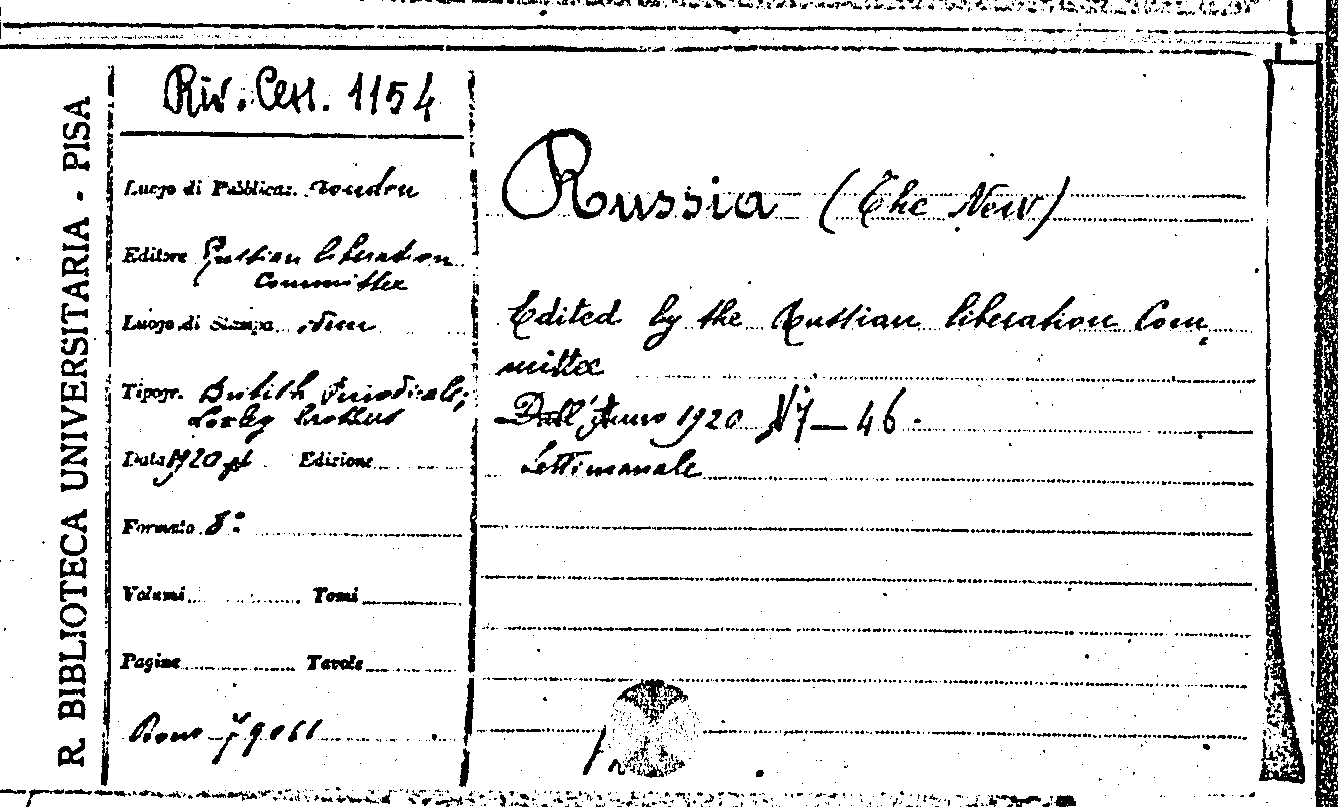 R. BIBLIOTECA UNIVERSITARIA - PISA
Riv. Cess. 1154
Luogo di Pubblicaz. London
Editore Russian liberation
Committee
Luogo di Stampa idem
Tipogr. British Periodicals;
Loxley brothers
Data 1920 Edizione
Formato 8º
Volumi Tomi
Pagine Tavole
Dono
Russia (The New)
Edited by the Russian liberation Com
mittee
Dall'Anno 1920 - 46.
Settimanale